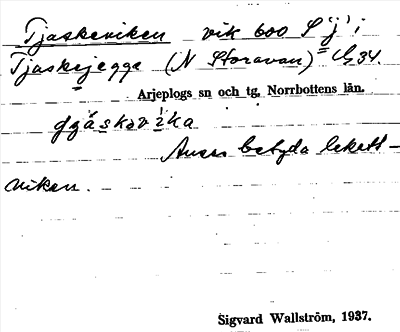 Tjaskeviken vik 600 S "j" i
Tjaskejegge (N Storavan) 34.
Arjeplogs sn och tg, Norrbottens län.
Anses betyda lekatt-
viken.
Sigvard Wallström, 1937.